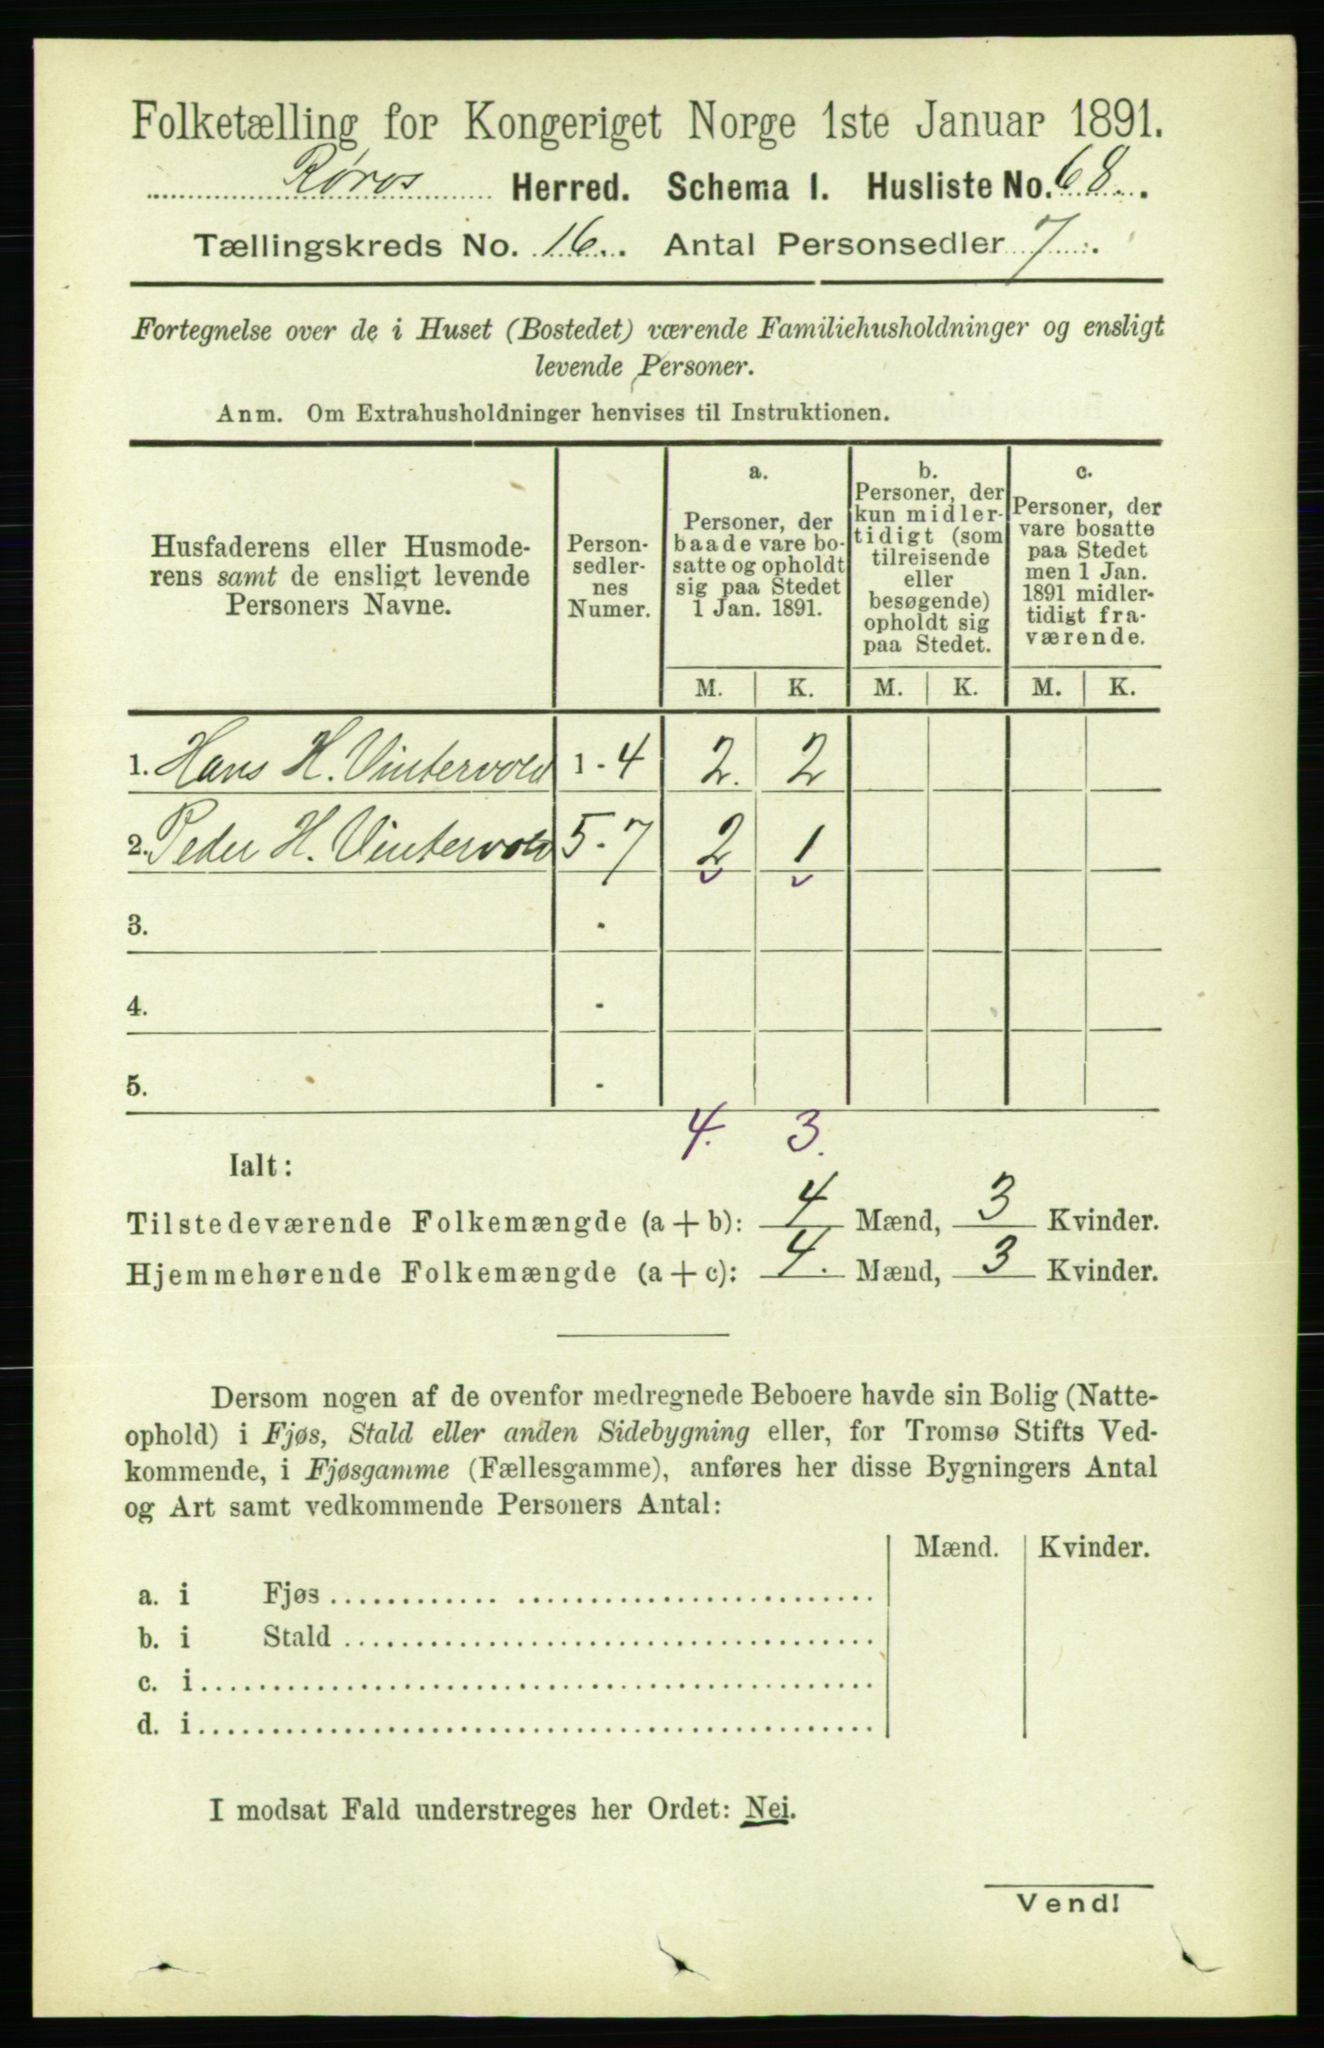 Folketælling for Kongeriget Norge 1ste Januar 1891.
Røros Herred. Schema I. Husliste No. 68.
Tællingskreds No. 16. Antal Personsedler 7.
Fortegnelse over de i Huset (Bostedet) værende Familiehusholdninger og ensligt
levende Personer.
Anm. Om Extrahusholdninger henvises til Instruktionen.
Husfaderens eller Husmode-
rens samt de ensligt levende
Personers Navne.
Person-
sedler-
nes
Numer.
a.
Personer, der
baade vare bo-
satte og opholdt
sig paa Stedet
1 Jan. 1891.
b.
Personer, der
kun midler-
tidigt (som
tilreisende
eller
besøgende)
opholdt sig
paa Stedet.
c.
Personer, der
vare bosatte
paa Stedet
men 1 Jan.
1891 midler-
tidigt fra-
værende.
M. K. M. K. M. K.
1. Hans H. Vintervold 1 - 4 2. 2
2. Peder H. Vintervold 5 - 7 2 1
3. -
4. -
5. -
4. 3.
Ialt:
Tilstedeværende Folkemængde (a + b): 4 Mænd, 3 Kvinder.
Hjemmehørende Folkemængde (a + c): 4. Mænd, 3 Kvinder.
Dersom nogen af de ovenfor medregnede Beboere havde sin Bolig (Natte-
ophold) i Fjøs, Stald eller anden Sidebygning eller, for Tromsø Stifts Ved-
kommende, i Fjøsgamme (Fællesgamme), anføres her disse Bygningers Antal
og Art samt vedkommende Personers Antal:
Mænd. Kvinder.
a. i Fjøs
b. i Stald
c. i
d. i
I modsat Fald understreges her Ordet: Nei.
Vend!